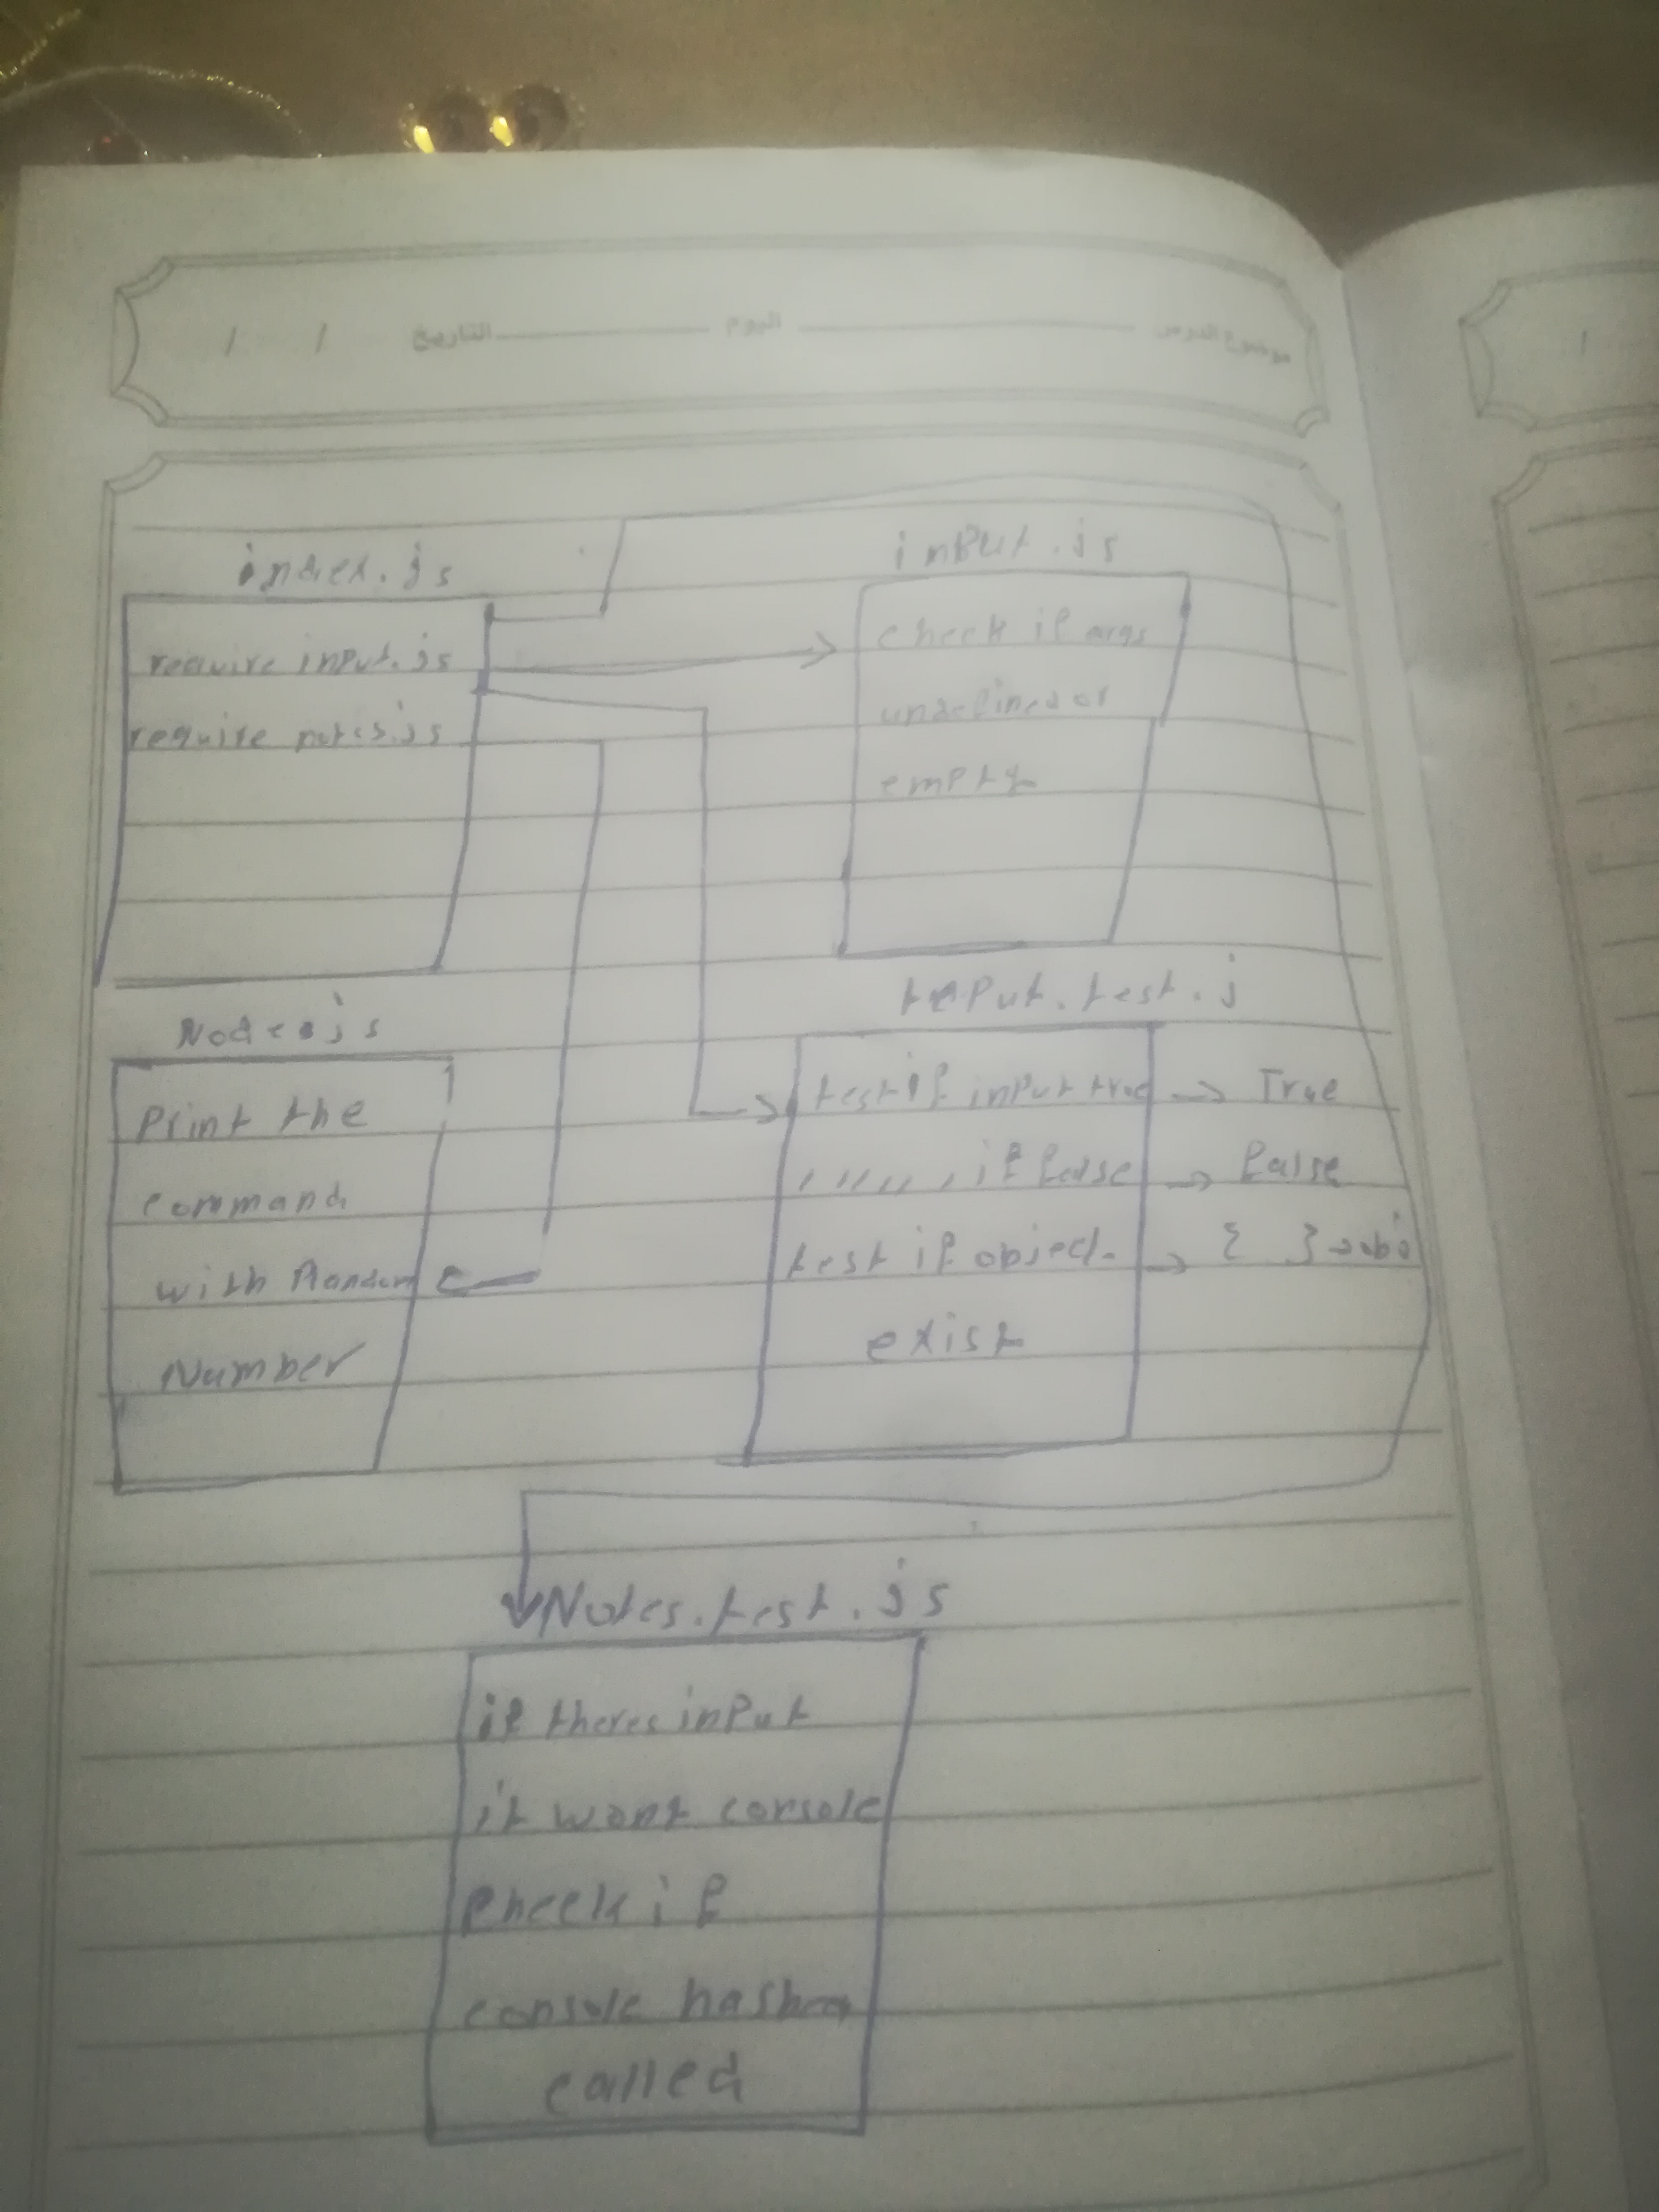 موضوع الدرس اليوم التاريخ / /
index.js
require input.js
require notes.js
input.js
check if args
undefined or
empty
Node.js
Print the
command
with Random
Number
input.test.j
test if input true → True
,,,,,, if false → false
test if object → { } → obj
exist
Notes.test.js
if theres input
it wont console
check if
console hasbeen
called